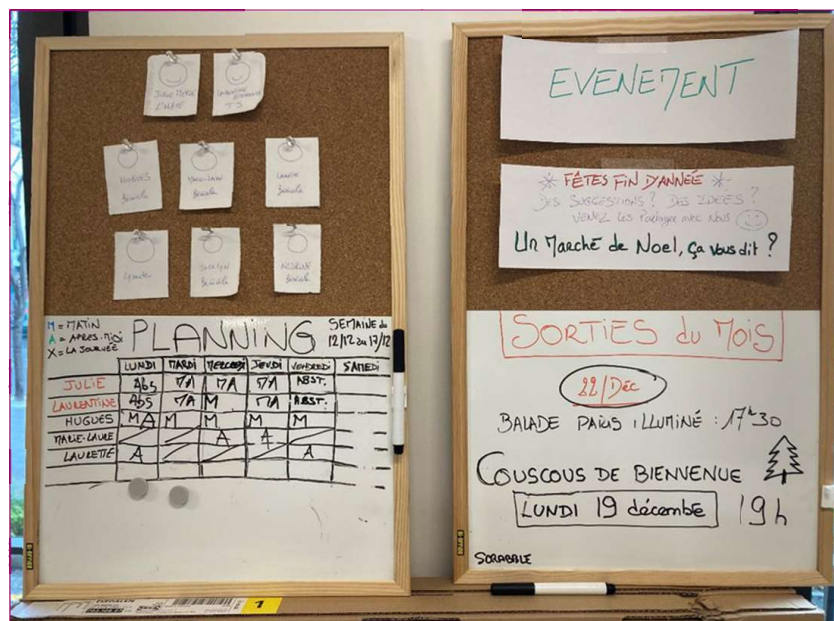 JULIE
T S
HUGUES
Bénévole
MARIE-LAURE
Bénévole
LAURETTE
Bénévole
JOCELYN
Bénévole
Bénévole
M = MATIN
A = APRES-MIDI
X = LA JOURNÉE
PLANNING
SEMAINE du
12/12 au 17/12
LUNDI MARDI MERCREDI JEUDI VENDREDI SAMEDI
JULIE Abs MA MA MA ABST.
LAURENTINE Abs MA M MA ABST.
HUGUES MA M M M M
MARIE-LAURE A A
LAURETTE A A
EVENEMENT
FÊTES FIN D'ANNÉE
DES SUGGESTIONS ? DES IDÉES ?
VENEZ les Partager avec Nous
Un Marché de Noel, ça vous dit ?
SORTIES du MOIS
22/Déc
BALADE PARIS ILLUMINÉ : 17h30
COUSCOUS DE BIENVENUE
LUNDI 19 décembre 19h
SCRABBLE